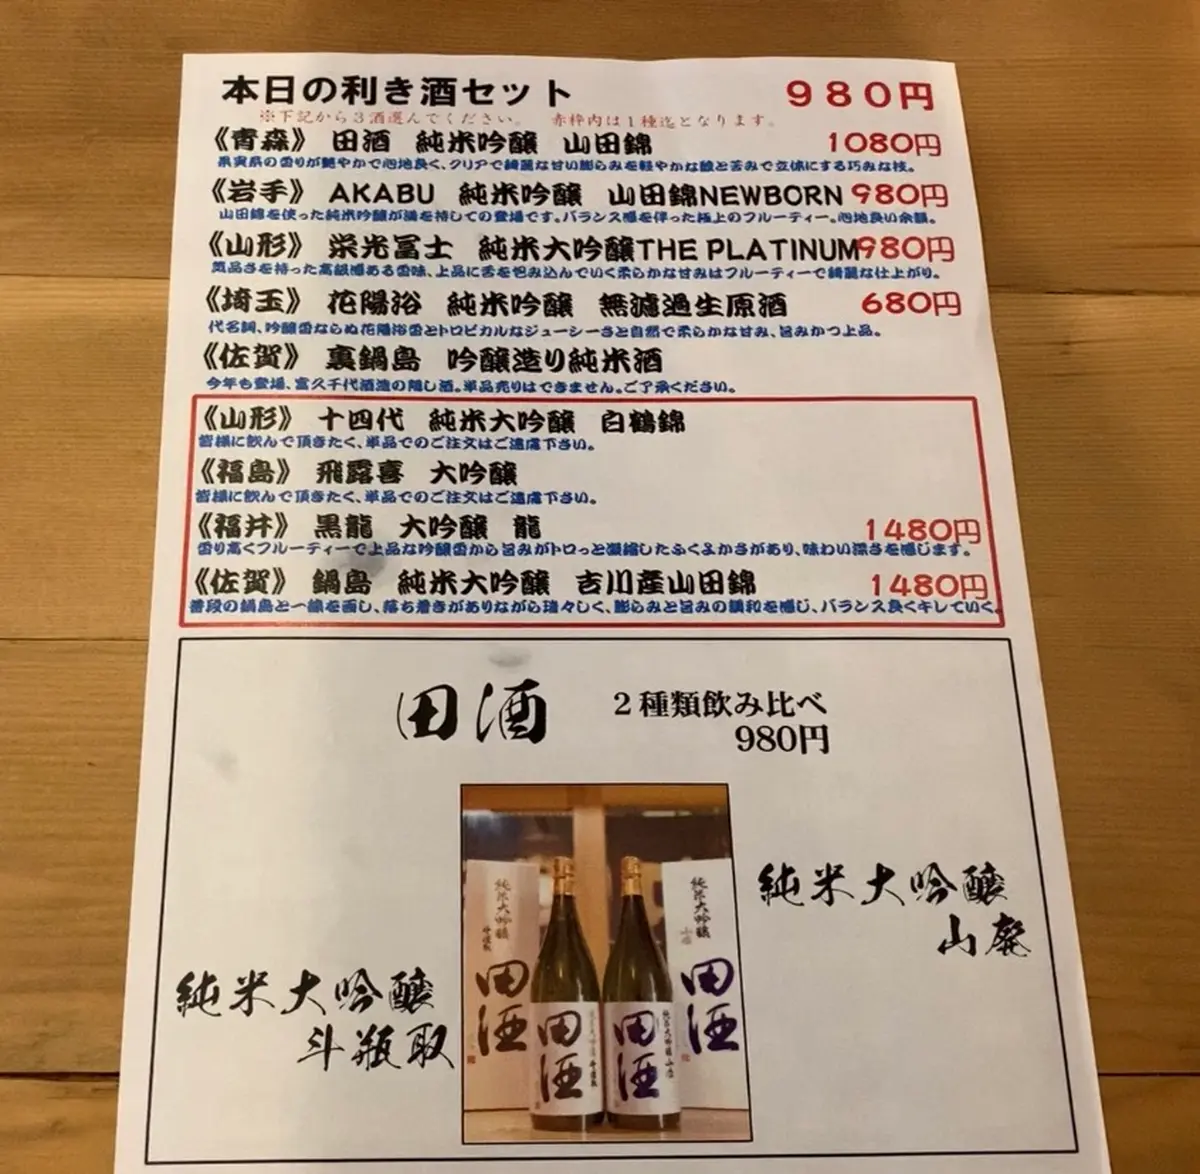 本日の利き酒セット 980円
※下記から3酒選んでください。 赤枠内は1種迄となります。
《青森》 田酒 純米吟醸 山田錦 1080円
果実系の香りが艶やかで心地良く、クリアで綺麗な甘い膨らみを軽やかな酸と苦みで立体にする巧みな技。
《岩手》 AKABU 純米吟醸 山田錦NEWBORN 980円
山田錦を使った純米吟醸が満を持しての登場です。バランス感を伴った極上のフルーティー。心地良い余韻。
《山形》 栄光冨士 純米大吟醸THE PLATINUM 980円
気品さを持った高級感ある香味、上品に舌を包み込んでいく柔らかな甘みはフルーティーで綺麗な仕上がり。
《埼玉》 花陽浴 純米吟醸 無濾過生原酒 680円
代名詞、吟醸香ならぬ花陽浴香とトロピカルなジューシーさと自然で柔らかな甘み、旨みかつ上品。
《佐賀》 裏鍋島 吟醸造り純米酒
今年も登場、富久千代酒造の隠し酒。単品売りはできません。ご了承ください。
《山形》 十四代 純米大吟醸 白鶴錦
皆様に飲んで頂きたく、単品でのご注文はご遠慮下さい。
《福島》 飛露喜 大吟醸
皆様に飲んで頂きたく、単品でのご注文はご遠慮下さい。
《福井》 黒龍 大吟醸 龍 1480円
香り高くフルーティーで上品な吟醸香から旨みがトロっと凝縮したふくよかさがあり、味わい深さを感じます。
《佐賀》 鍋島 純米大吟醸 吉川産山田錦 1480円
普段の鍋島と一線を画し、落ち着きがありながら瑞々しく、膨らみと旨みの調和を感じ、バランス良くキレていく。
田酒 2種類飲み比べ
980円
純米大吟醸
山廃
純米大吟醸
斗瓶取
純米大吟醸
斗瓶取
田酒
田酒
田酒
純米大吟醸
山廃
田酒